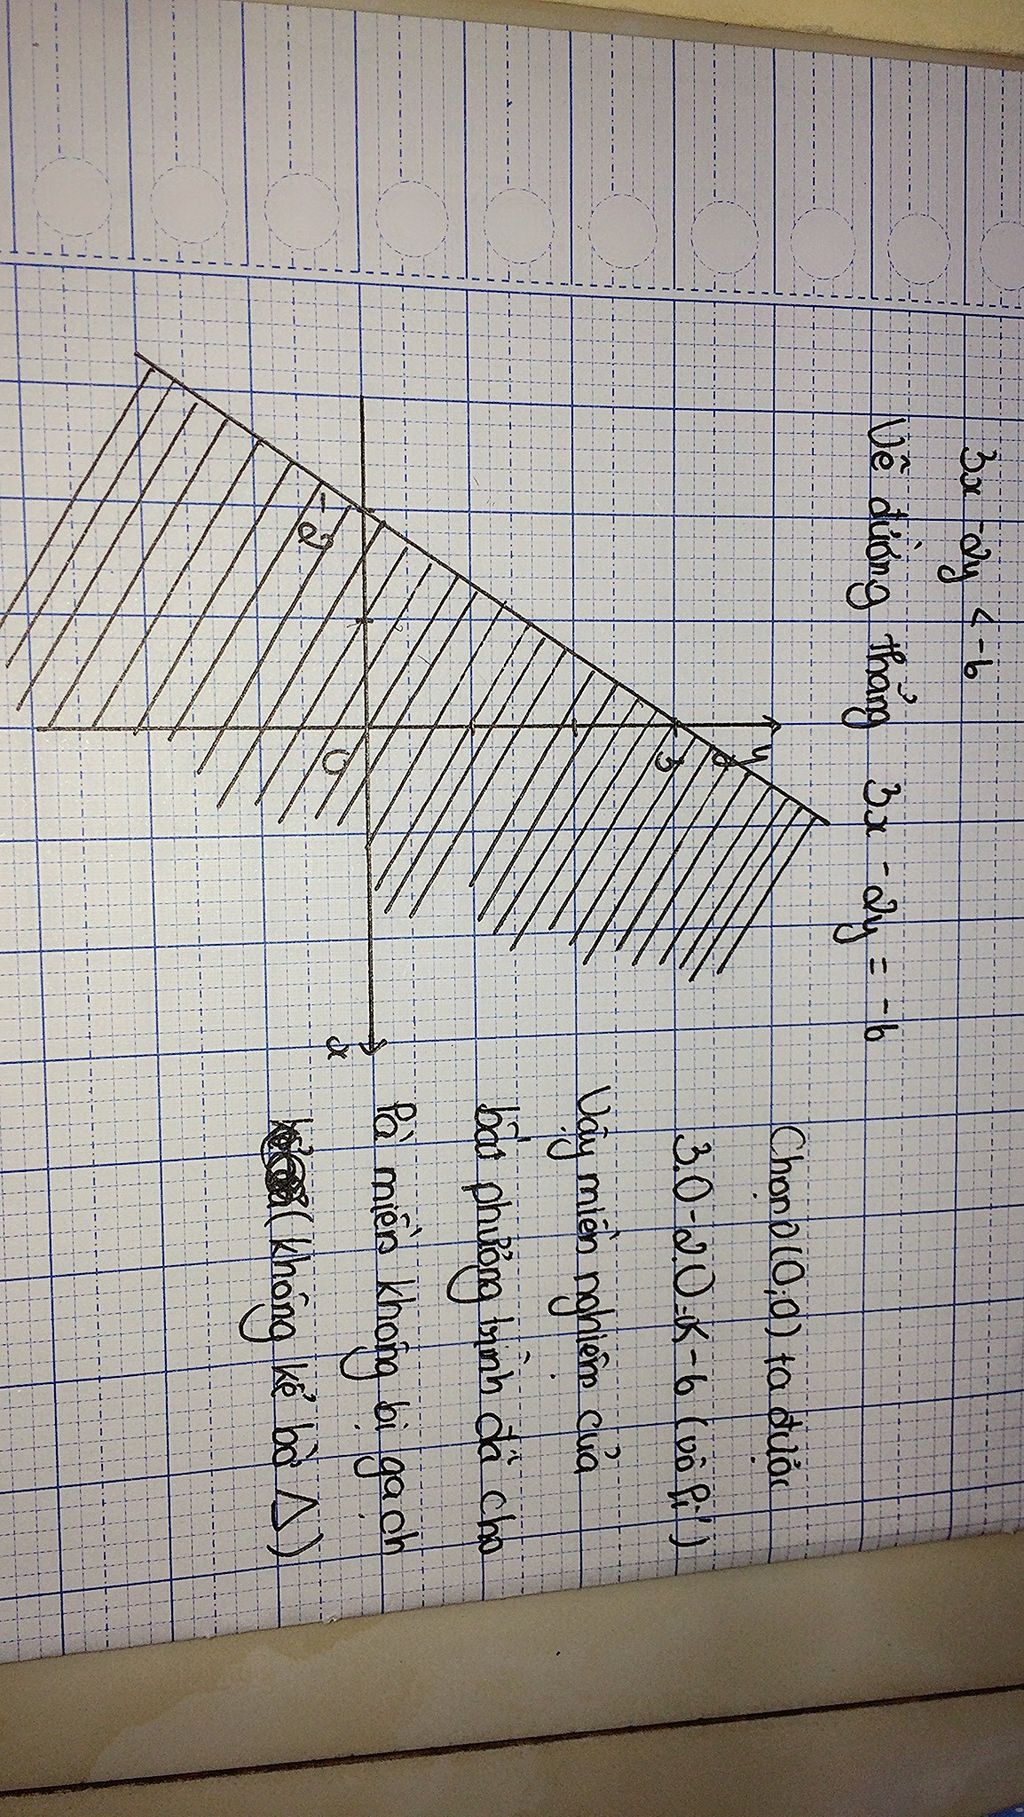 3x - 2y < -6
Vẽ đường thẳng 3x - 2y = -6
y
3
-2
O
x
Chọn O(0;0) ta được
3.0-2.0 < -6 (vô lí)
Vậy miền nghiệm của
bất phương trình đã cho
là miền không bị gạch
(không kể bờ Δ)